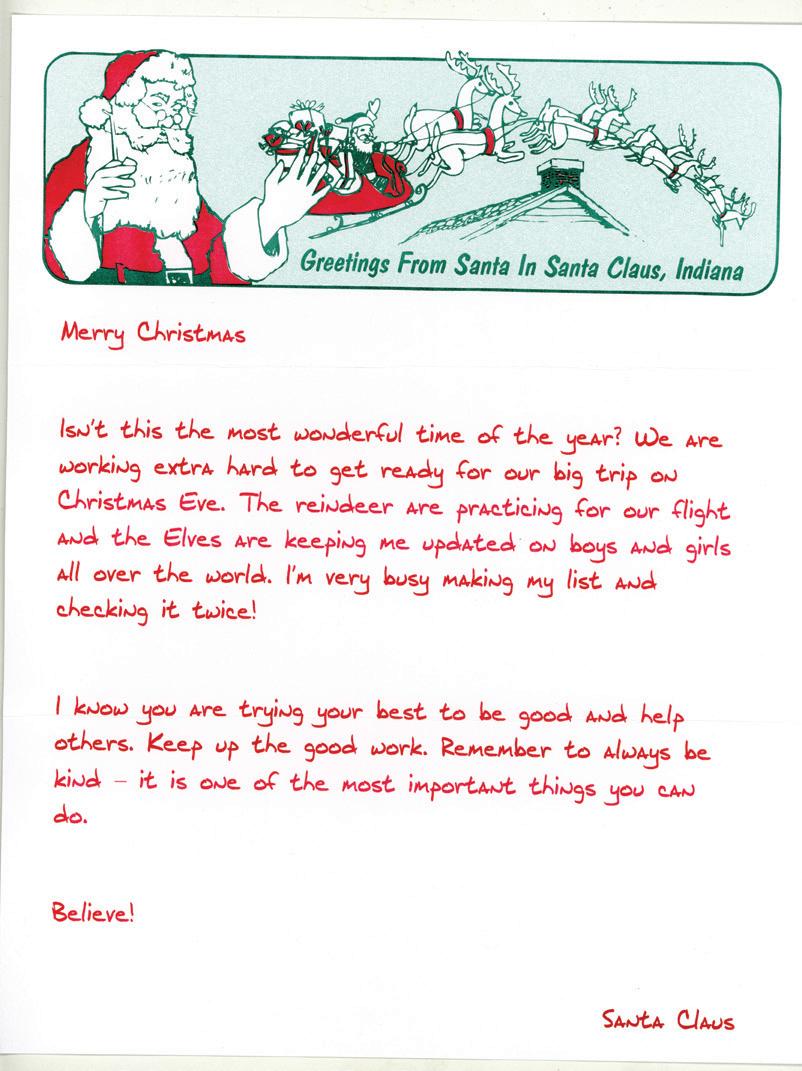 Greetings From Santa In Santa Claus, Indiana
Merry Christmas
Isn't this the most wonderful time of the year? We are
working extra hard to get ready for our big trip on
Christmas Eve. The reindeer are practicing for our flight
and the Elves are keeping me updated on boys and girls
all over the world. I'm very busy making my list and
checking it twice!
I know you are trying your best to be good and help
others. Keep up the good work. Remember to always be
kind – it is one of the most important things you can
do.
Believe!
Santa Claus